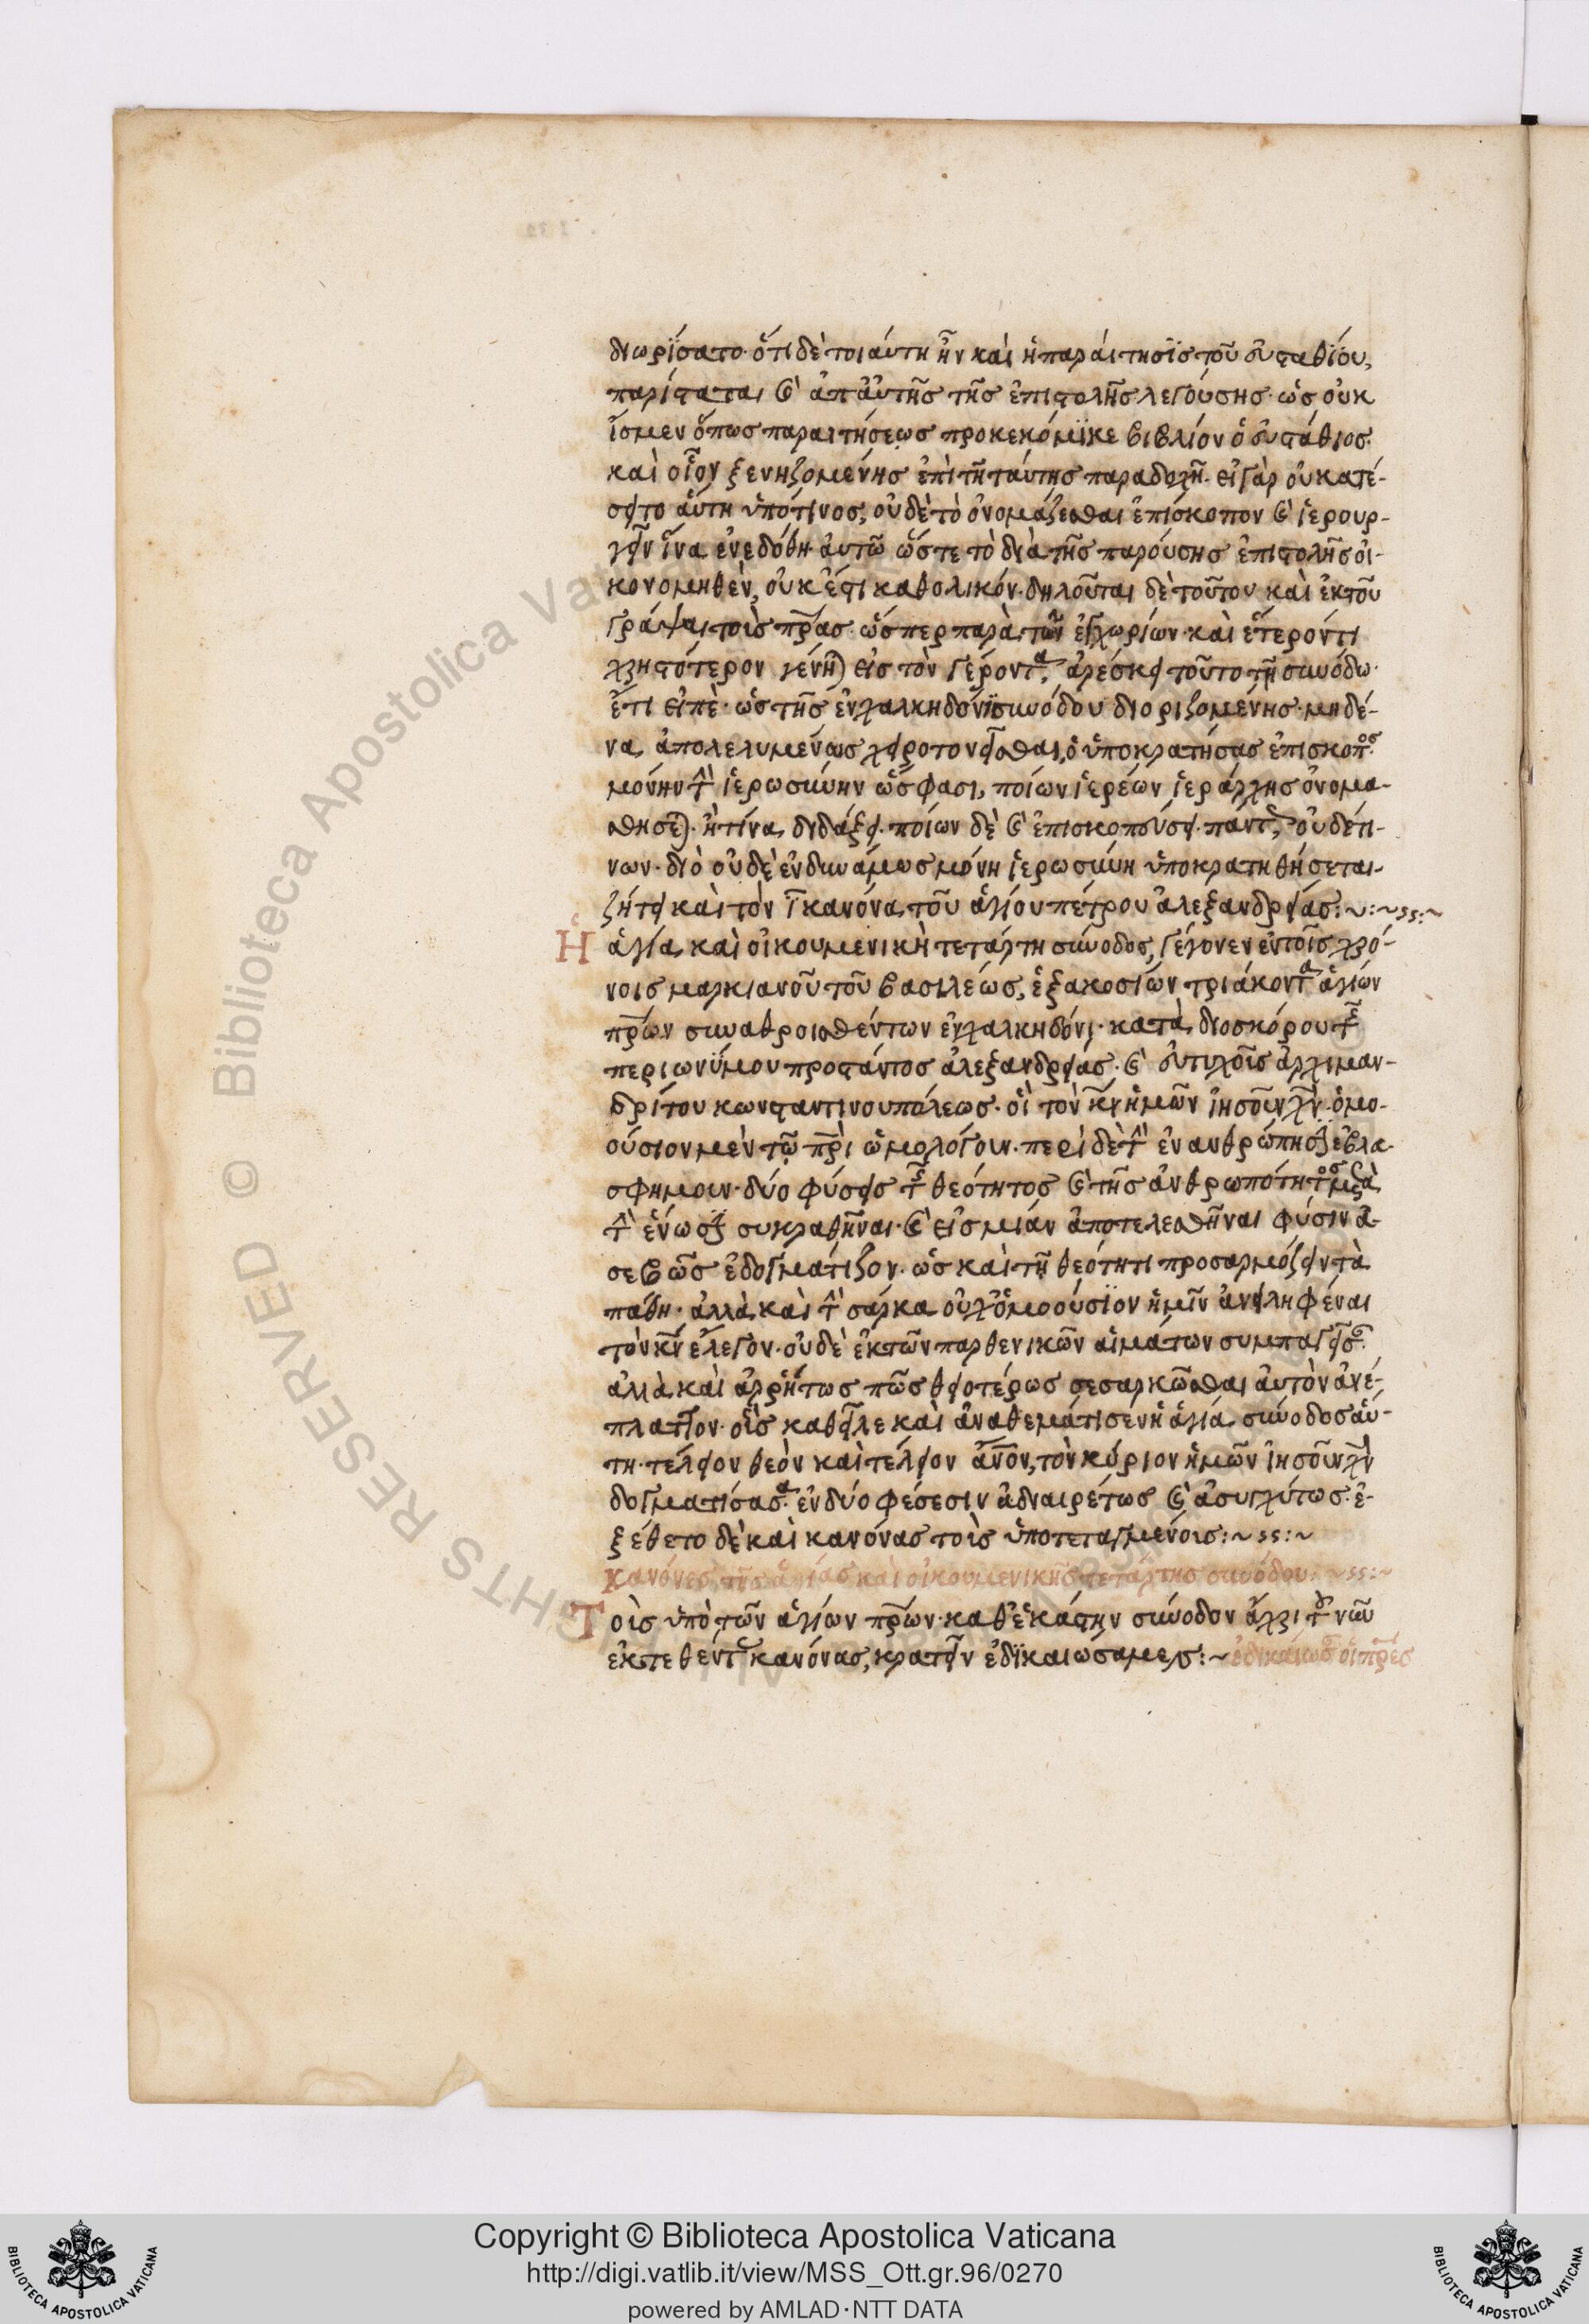 διωρίσατο· ὅτι δὲ τοιάυτη ἦν καὶ ἡ παράιτησϊς τοῦ ἐυσταθΐου,
παρίσταται καὶ ἀπ' ἀυτῆς τῆς ἐπιστολῆς λεγούσης· ὡς οὐκ
ἴσμεν ὅπως παραιτήσεως προκεκόμϊκε βιβλίον ὁ ἐυστάθιος·
καὶ οἷον ξενηζομένης ἐπὶ τῆ ταύτης παραδοχῆ· εἰ γὰρ οὐ κατέ-
σειτο ἅυτη ὑπό τινος, οὐδὲ τὸ ὀνομάζεσθαι ἐπίσκοπον καὶ ἱερουρ-
γεῖν ἵνα ἐνεδόθη ἀυτῶ ὥστε τὸ διὰ τῆς παρούσης ἐπιστολῆς οἰ-
κονομηθὲν, οὐκ ἔστι καθολικόν· δηλοῦται δὲ τοῦτον καὶ ἐκ τοῦ
γράψαι τοὺς πρ̅ας· ὥσπερ παρὰ τῶν ἐγχωρίων· καὶ ἕτερόν τι
χρηστότερον γένηται εἰς τὸν γέροντα, ἀρέσκει τοῦτο τῆ συνόδω·
ἔτι εἰπὲ· ὡς τῆς ἐν χαλκηδόνϊ συνόδου διοριζομένης· μηδέ-
να ἀπολελυμένως χειροτονεῖσθαι, ὁ ὑποκρατήσας ἐπίσκοπος
μόνην τὴν ἱερωσύνην ὥς φασι, ποίων ἱερέων ἱεράρχης ὀνομα-
σθήσεται· ἢ τίνα διδάξει· ποίων δὲ καὶ ἐπισκοπεύσει· πάντως οὐδέτι-
νων· διὸ οὐδὲ ἐνδυνάμως μόνη ἱερωσύνη ὑποκρατηθήσεται·
ζήτει καὶ τὸν ι̅ κανόνα τοῦ ἁγίου πέτρου ἀλεξανδρείας:~:~ss:~
Ἡ ἁγία καὶ οἰκουμενικὴ τετάρτη σύνοδος, γέγονεν ἐν τοῖς χρό-
νοις μαρκιανοῦ τοῦ βασιλέως, ἑξακοσίων τριάκοντα ἁγίων
πρ̅ων συναθροισθέντων ἐν χαλκηδόνι· κατὰ διοσκόρου τοῦ
περιωνΰμου προστάντος ἀλεξανδρείας· καὶ ἐυτυχοῦς ἀρχιμαν-
δρίτου κωνσταντινουπόλεως· οἳ τὸν κ̅ν ἡμῶν ἰησοῦν χ̅ν· ὁμο-
ούσιον μὲν τῶ πρ̅ὶ ὡμολόγουν· περὶ δὲ τὴν ἐνανθρώπησιν ἐβλα-
σφήμουν· δύο φύσεις τῆς θεότητος καὶ τῆς ἀνθρωπότητος μετὰ
τὴν ἕνωσιν συκραθῆναι· καὶ εἰς μιάν ἀποτελεσθῆναι φύσιν ἀ-
σεβῶς ἐδογμάτιζον· ὡς καὶ τῆ θεότητι προσαρμόζειν τὰ
πάθη· ἀλλὰ καὶ τὴν σάρκα οὐχ ὁμοούσϊον ἡμῖν ἀνειληφέναι
τὸν κ̅ν ἔλεγον· οὐδὲ ἐκ τῶν παρθενικῶν αἱμάτων συμπαγεῖσαν·
ἀλλὰ καὶ ἀρρήτως πῶς θειοτέρως σεσαρκῶσθαι ἀυτὸν ἀνέ-
πλαττον· οὓς καθεῖλε καὶ ἀναθεμάτισεν ἡ ἁγία σύνοδος ἅυ-
τη· τέλειον θεὸν καὶ τέλειον ἄν̅ον, τὸν κύριον ἡμῶν ἰησοῦν χ̅ν
δογματίσασα· ἐν δύο φέσεσιν ἀδιαιρέτως καὶ ἀσυγχύτως· ἐ-
ξέθετο δὲ καὶ κανόνας τοὺς ὑποτεταγμένους:~ss:~
κανόνες τῆς ἁγίας καὶ οἰκουμενικῆς τετάρτης συνόδου:~ss:~
Τοὺς ὑπὸ τῶν ἁγίων πρ̅ων· καθ' ἑκάστην σύνοδον ἄχρι τοῦ νῦν
ἐκτεθέντας κανόνας, κρατεῖν ἐδϊκαιώσαμεν:~ ἐδικάιωσαν οἱ πρ̅ες
Copyright © Biblioteca Apostolica Vaticana
http://digi.vatlib.it/view/MSS_Ott.gr.96/0270
powered by AMLAD·NTT DATA